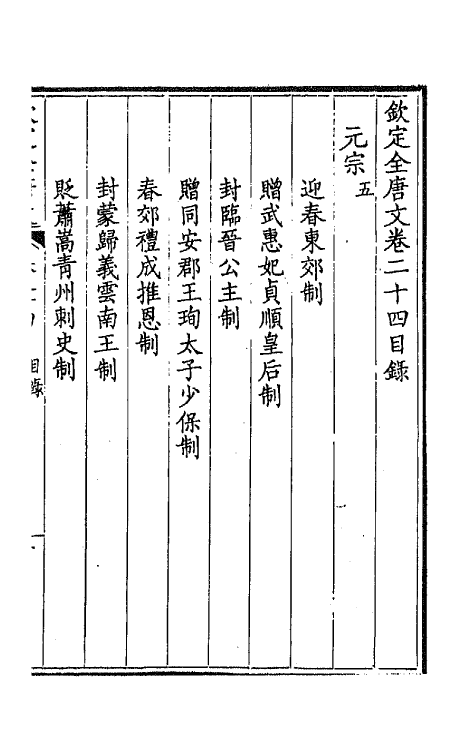 欽定全唐文卷二十四目錄
元宗五
迎春東郊制
贈武惠妃貞順皇后制
封臨晉公主制
贈同安郡王珣太子少保制
春郊禮成推恩制
封蒙歸義雲南王制
貶蕭嵩青州刺史制
目錄